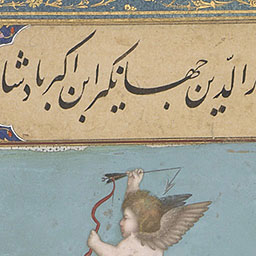 رالدین جهانگیر ابن اکبر پادشا